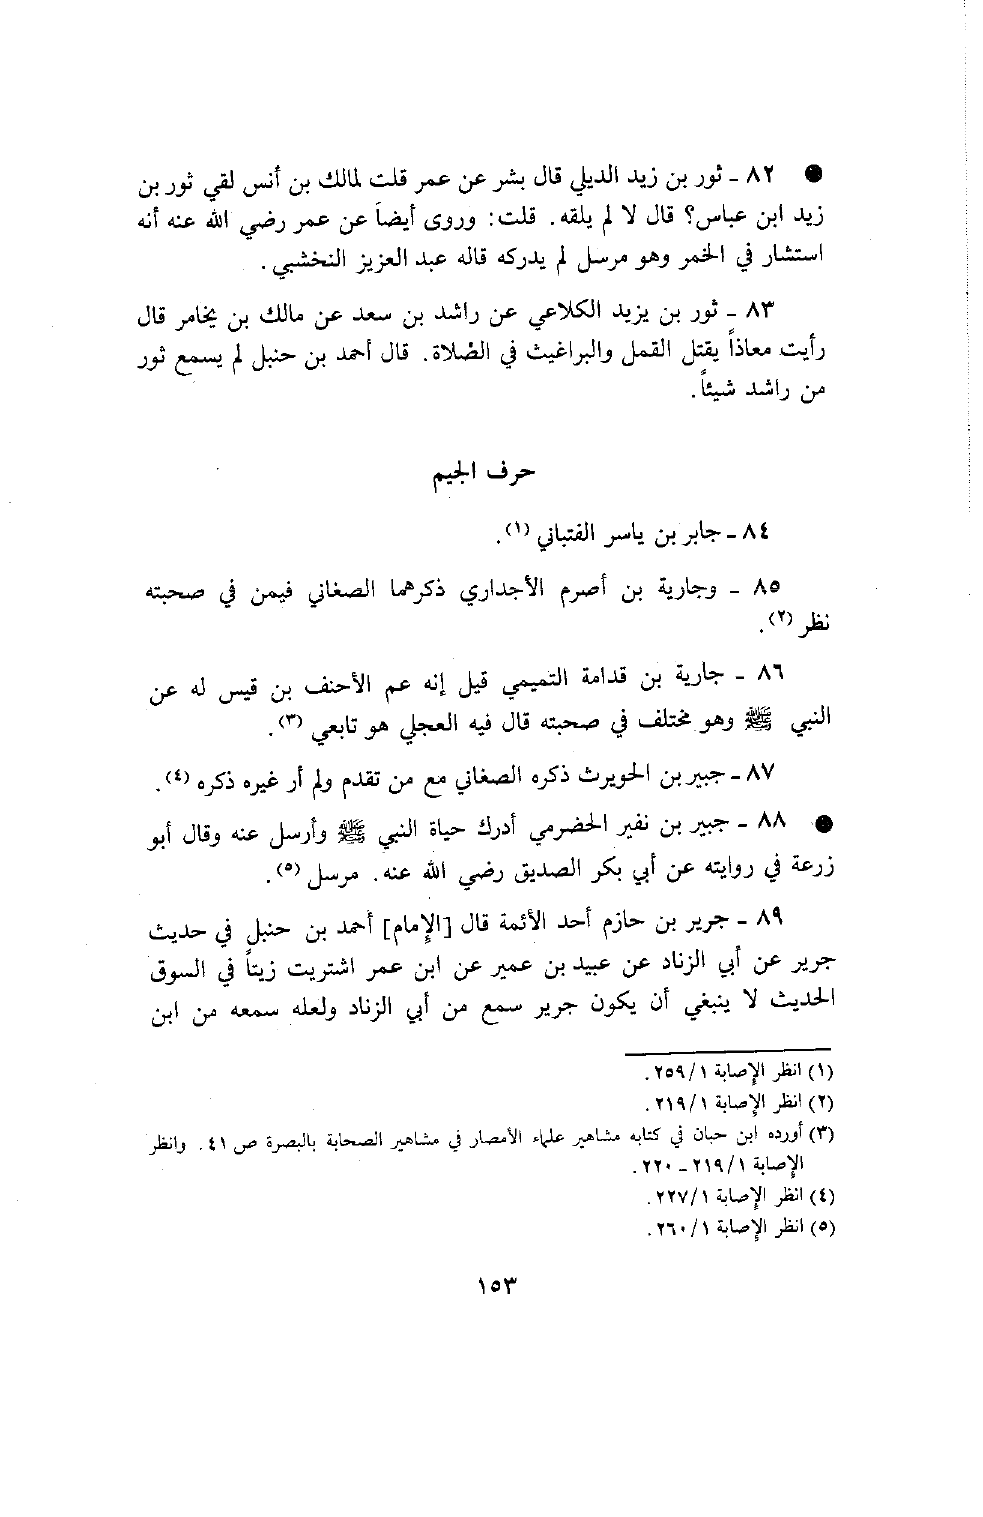 ● ٨٢ - ثور بن زيد الديلي قال بشر عن عمر قلت لمالك بن أنس لقي ثور بن
زيد ابن عباس؟ قال لا لم يلقه. قلت: وروى أيضاً عن عمر رضي الله عنه أنه
استشار في الخمر وهو مرسل لم يدركه قاله عبد العزيز النخشبي.
٨٣ - ثور بن يزيد الكلاعي عن راشد بن سعد عن مالك بن يخامر قال
رأيت معاذاً يقتل القمل والبراغيث في الصلاة. قال أحمد بن حنبل لم يسمع ثور
من راشد شيئاً.
حرف الجيم
٨٤ - جابر بن ياسر الفتباني (١).
٨٥ - وجارية بن أصرم الأجداري ذكرهما الصغاني فيمن في صحبته
نظر (٢).
٨٦ - جارية بن قدامة التميمي قيل إنه عم الأحنف بن قيس له عن
النبي ﷺ وهو مختلف في صحبته قال فيه العجلي هو تابعي (٣).
٨٧ - جبير بن الحويرث ذكره الصغاني مع من تقدم ولم أر غيره ذكره (٤).
● ٨٨ - جبير بن نفير الحضرمي أدرك حياة النبي ﷺ وأرسل عنه وقال أبو
زرعة في روايته عن أبي بكر الصديق رضي الله عنه. مرسل (٥).
٨٩ - جرير بن حازم أحد الأئمة قال [الإمام] أحمد بن حنبل في حديث
جرير عن أبي الزناد عن عبيد بن عمير عن ابن عمر اشتريت زيتاً في السوق
الحديث لا ينبغي أن يكون جرير سمع من أبي الزناد ولعله سمعه من ابن
(١) انظر الإصابة ٢٥٩/١.
(٢) انظر الإصابة ٢١٩/١.
(٣) أورده ابن حبان في كتابه مشاهير علماء الأمصار في مشاهير الصحابة بالبصرة ص ٤١. وانظر
الإصابة ٢١٩/١ - ٢٢٠.
(٤) انظر الإصابة ٢٢٧/١.
(٥) انظر الإصابة ٢٦٠/١.
١٥٣